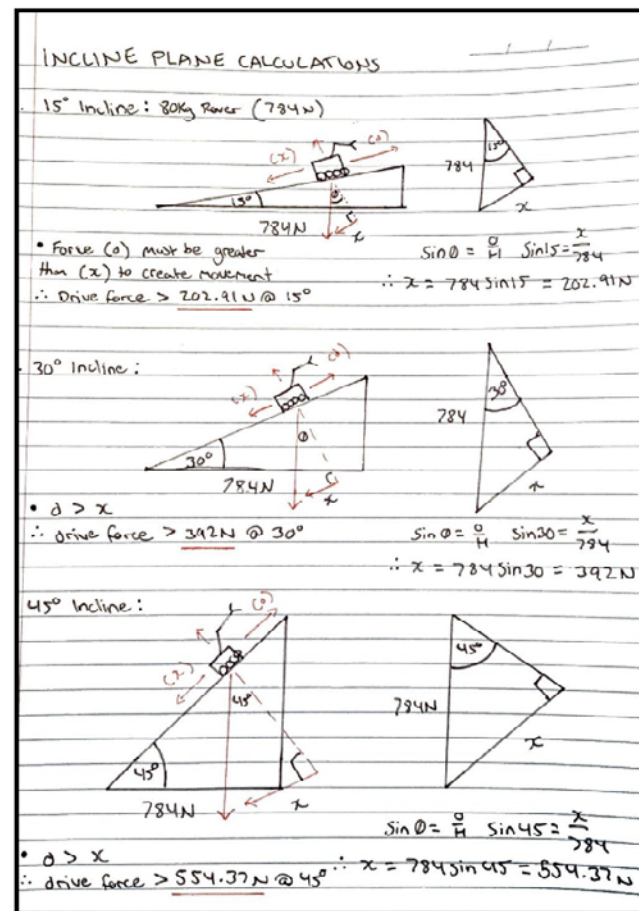 INCLINE PLANE CALCULATIONS
15° Incline: 80Kg Rover (784N)
(x) (d)
15°
784N
θ
x
784
15°
x
• Force (d) must be greater
than (x) to create movement
∴ Drive force > 202.91N @ 15°
Sinθ = O/H Sin15 = x/784
∴ x = 784 sin15 = 202.91N
30° Incline:
(x) (d)
30°
θ
784N
x
784
30°
x
• d > x
∴ drive force > 392N @ 30°
Sinθ = O/H Sin30 = x/784
∴ x = 784 Sin30 = 392N
45° Incline:
(x) (d)
45°
45°
784N
x
45°
784N
x
Sinθ = O/H Sin45 = x/784
• d > x
∴ drive force > 554.37N @ 45°
∴ x = 784 sin 45 = 554.37N